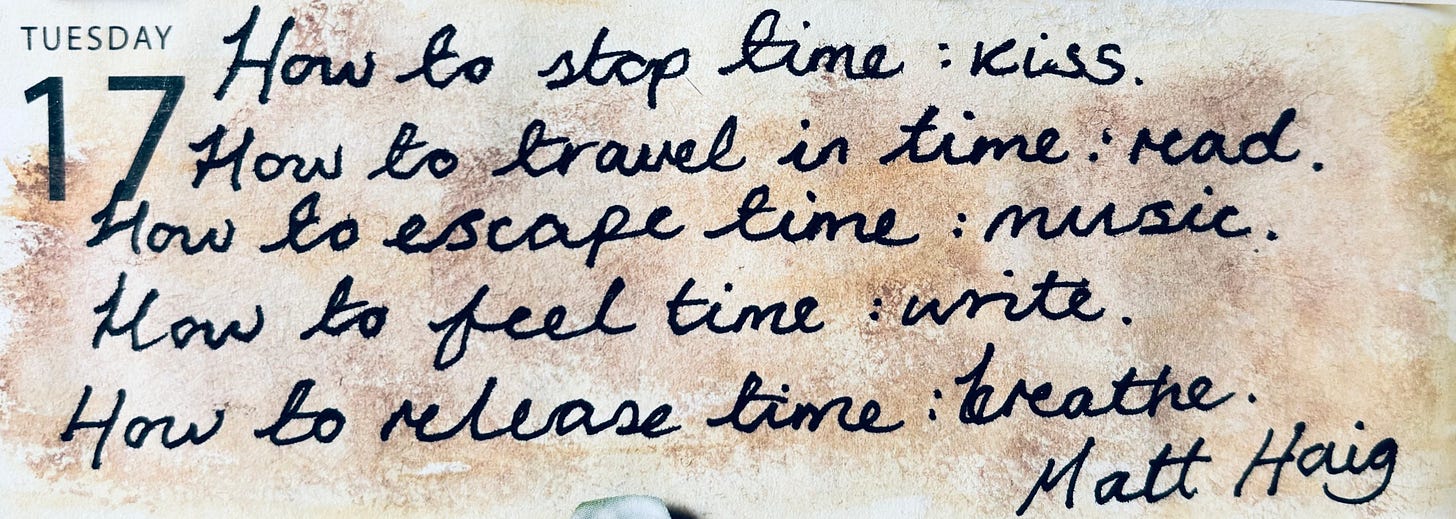 TUESDAY
17
How to stop time : kiss.
How to travel in time : read.
How to escape time : music.
How to feel time : write.
How to release time : breathe.
Matt Haig